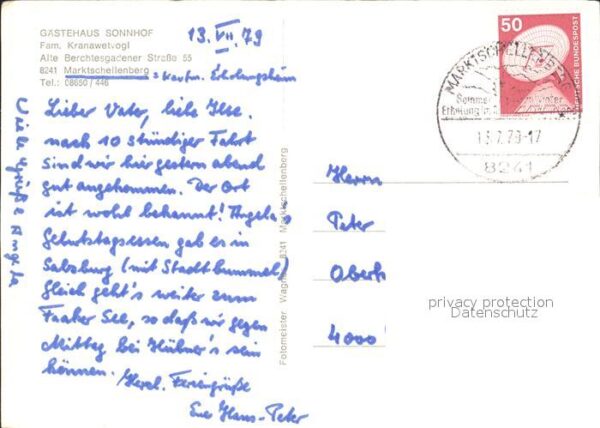 GÄSTEHAUS SONNHOF
Fam. Kranawetvogl
Alte Berchtesgadener Straße 55
8241 Marktschellenberg
Tel.: 08650 / 446
13. VII. 79
Erholungsheim
Lieber Vater, liebe Ilse,
nach 10 stündiger Fahrt
sind wir hier gestern abend
gut angekommen. Der Ort
ist wohl bekannt! Angela's
Geburtstagsessen gab es in
Salzburg (mit Stadtbummel)
Gleich geht's weiter zum
Faaker See, so daß wir gegen
Mittag bei Hübner's sein
können. Herzl. Feriengrüße
Eue Hans-Peter
Viele Grüße Angela
Fotomeister Wagner 8241 Marktschellenberg
50
DEUTSCHE BUNDESPOST
MARKTSCHELLENBERG
13.7.79-17
8241
Herrn
Peter
Oberk
4000
privacy protection
Datenschutz